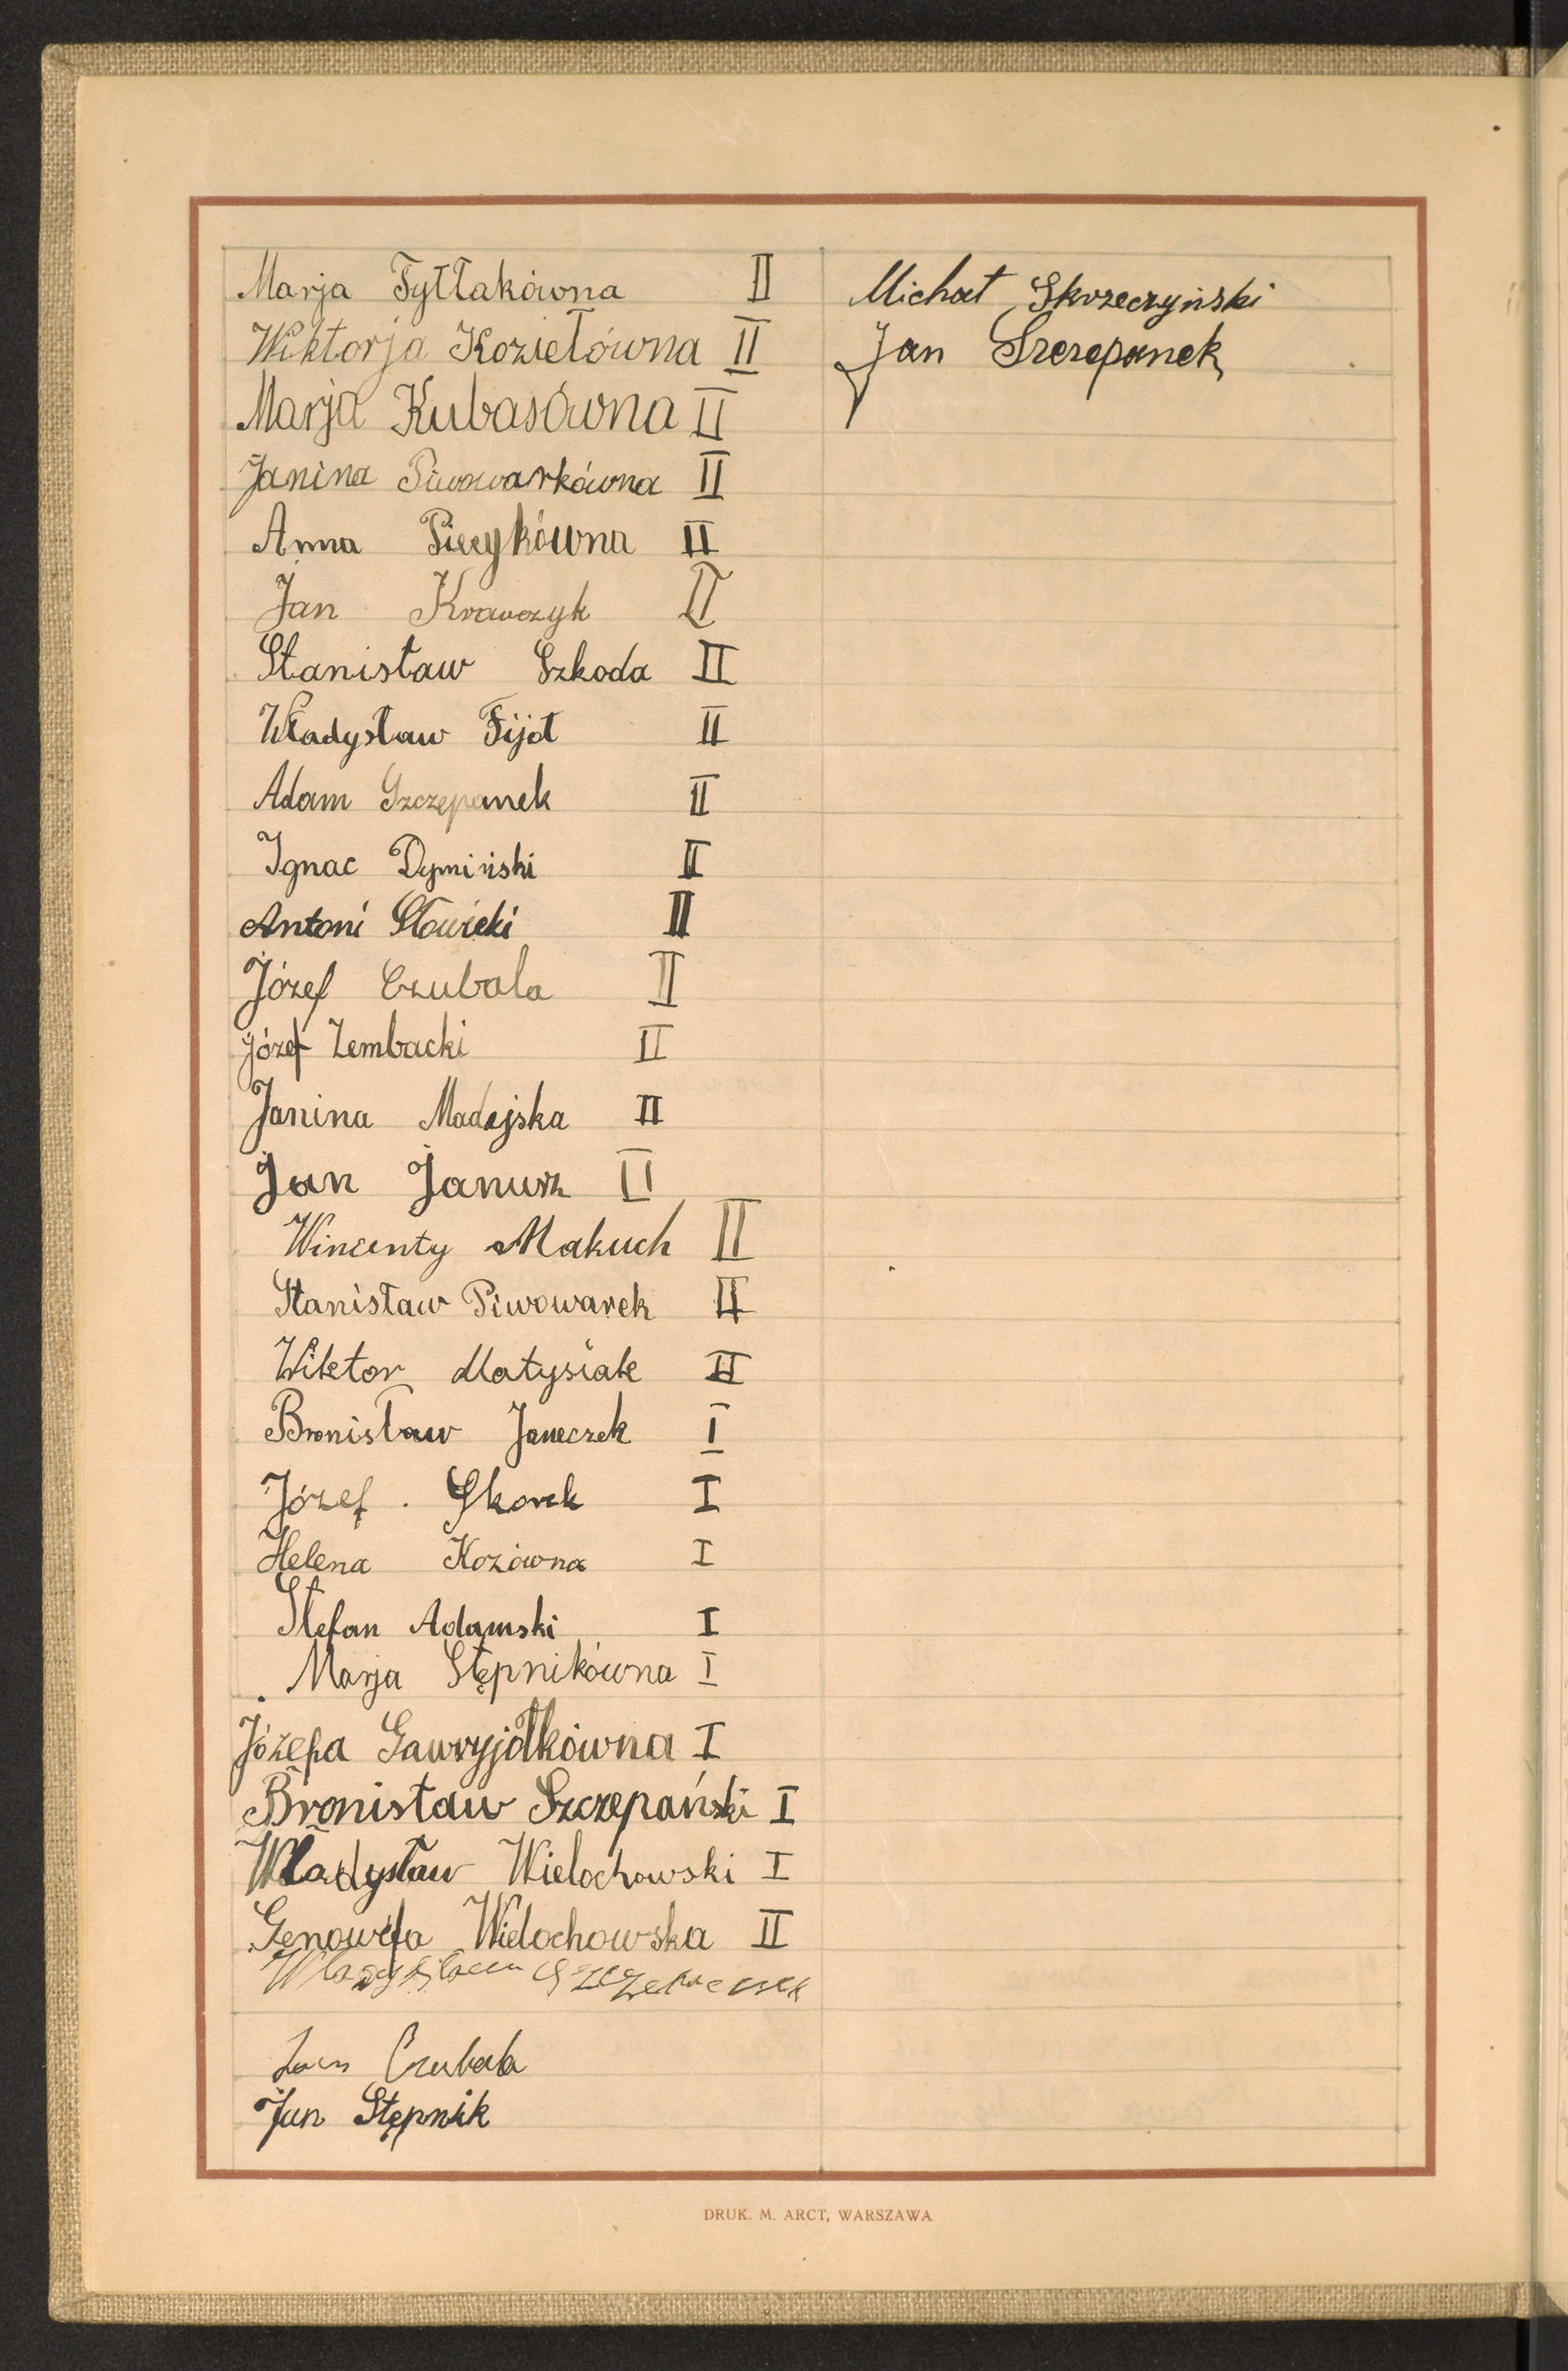 Marja Tyttakówna II
Wiktorja Koziełówna II
Marja Kubasówna II
Janina Piwowarkówna II
Anna Piecykówna II
Jan Krawczyk II
Stanisław Szkoda II
Władysław Fijoł II
Adam Szczepanek II
Ignac Dymiński II
Antoni Słowicki II
Józef Czubala II
Józef Zembacki II
Janina Madejska II
Jan Janusz II
Wincenty Makuch II
Stanisław Piwowarek II
Wiktor Matysiak II
Bronisław Janeczek I
Józef Skorek I
Helena Kozówna I
Stefan Adamski I
Marja Stępnikówna I
Józefa Gawryjołkówna I
Bronisław Szczepański I
Władysław Wielochowski I
Genowefa Wielochowska II
Władysław Szczepanek
Jan Czubala
Jan Stępnik
Michał Skrzeczyński
Jan Szczepanek
DRUK. M. ARCT, WARSZAWA